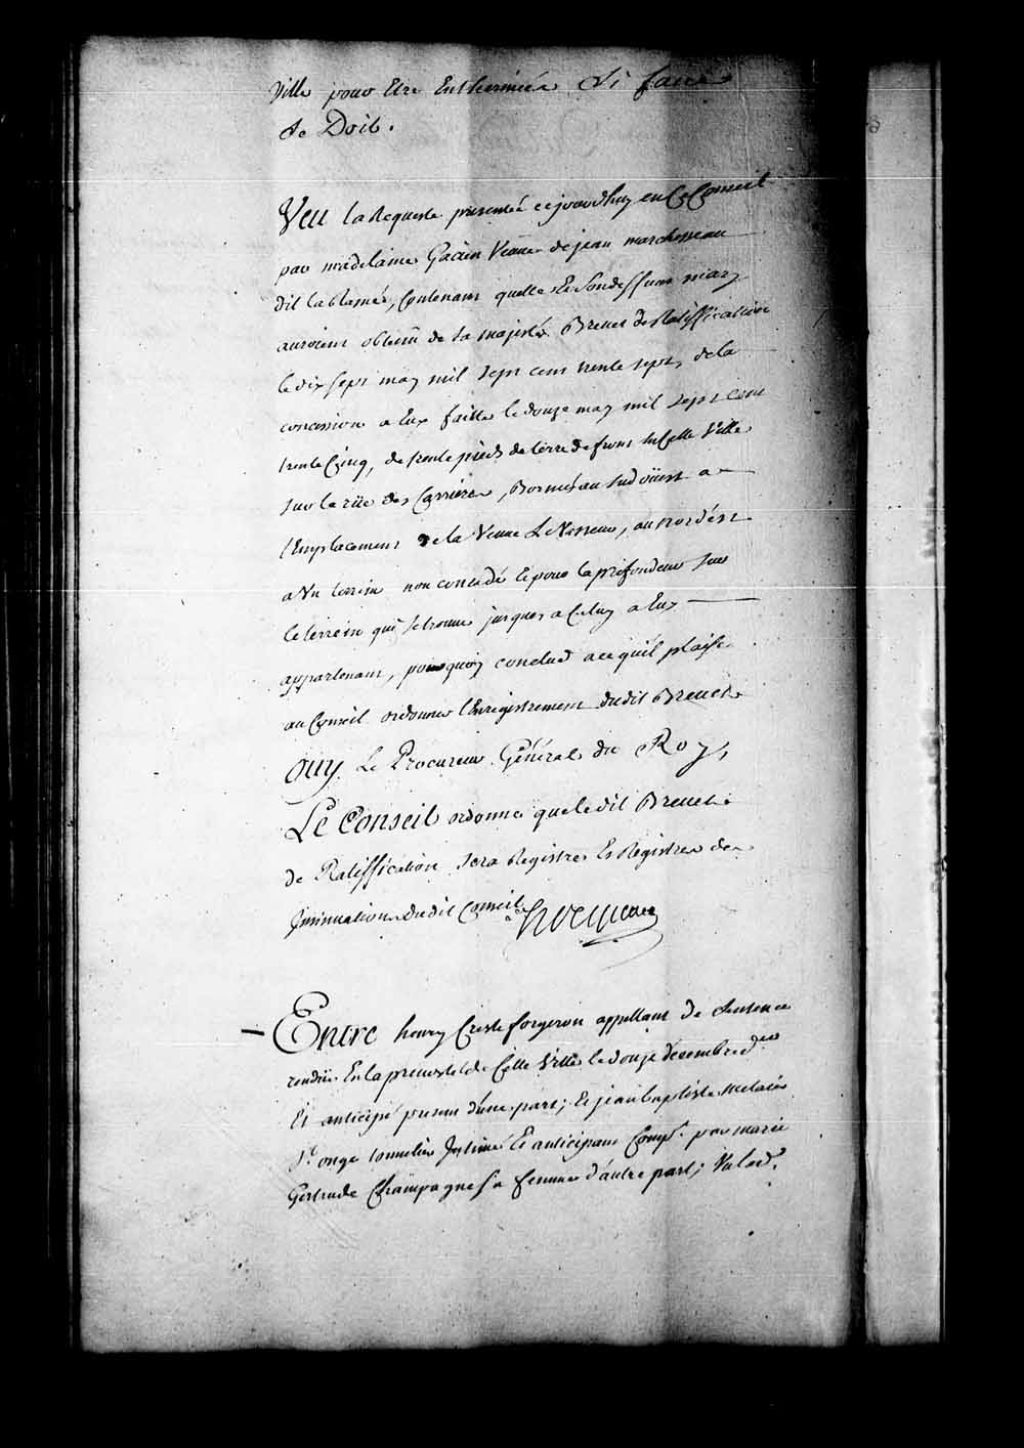 Ville pour Etre Entherinée Si faire
se Doit.
Veu la Requeste presentée cejourdhuy en Ce Conseil
par madelaine Gacien Veuve de jean marchesseau
dit lablamée, Contenant quelle Et Son deffunt mary
auroient obtenu de sa majesté Brevet de Ratiffication
le dix sept may mil sept cent trente sept, de la
concession a Eux faitte le douze may mil sept cent
trente Cinq, de trente pieds de terre de front En Cette Ville
sur la rüe des Carrieres, Bornés au sud oüest a
l'Emplacement de la Veuve Le Vasseur, au nord est
a Un terrein non concedé Et pour la profondeur sur
le terrein qui se trouve jusques a Celuy a Eux
appartenant, pourquoy conclud a ce qu'il plaise
au Conseil ordonner l'Enregistrement dudit Brevet
Ouy Le Procureur Général du Roy,
Le Conseil ordonne que ledit Brevet
de Ratiffication sera Registré Es Registres des
Insinuations dudit Conseil
Entre henry Creste forgeron appellant de Sentence
rendüe En la prevosté de Cette Ville le douze decembre der
Et anticipé present d'une part; Et jean baptiste
St onge tonnelier Intimé Et anticipant Comp.t par marie
Gertrude Champagne sa femme d'autre part;